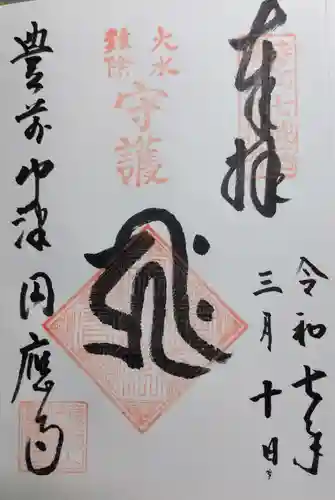 奉拝
令和七年
三月十日
火水
難除
守護
豊前中津 円應寺